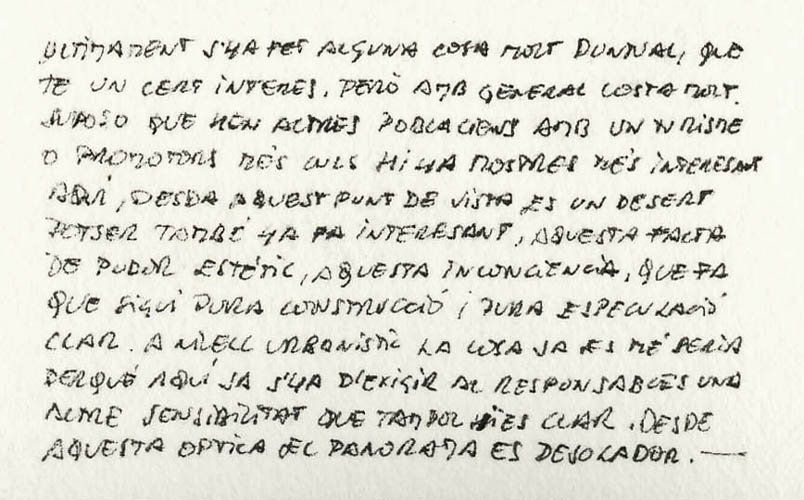 ULTIMAMENT S'HA FET ALGUNA COSA MOLT PUNTUAL, QUE
TÉ UN CERT INTERES, PERÒ AMB GENERAL COSTA MOLT.
SUPOSO QUE HEN ALTRES POBLACIONS AMB UN TURISME
O PROMOTORS MÉS CULS HI HA MOSTRES MÉS INTERESANT
AQUÍ, DESDA AQUEST PUNT DE VISTA ES UN DESERT
POTSER TAMBÉ HA FA INTERESANT, AQUESTA FALTA
DE PUDOR ESTÉTIC, AQUESTA INCONCIENCIA, QUE FA
QUE SIGUI PURA CONSTRUCCIÓ I PURA ESPECULACIÓ
CLAR. A NIVELL URBANISTIC LA COSA JA ES MÉ SERIA
PERQUÉ AQUÍ JA S'HA D'EXIGIR AL RESPONSABLES UNA
ALTRE SENSIBILITAT QUE TAMPOC HI ES CLAR. DESDE
AQUESTA OPTICA EL PANORAMA ES DESOLADOR.